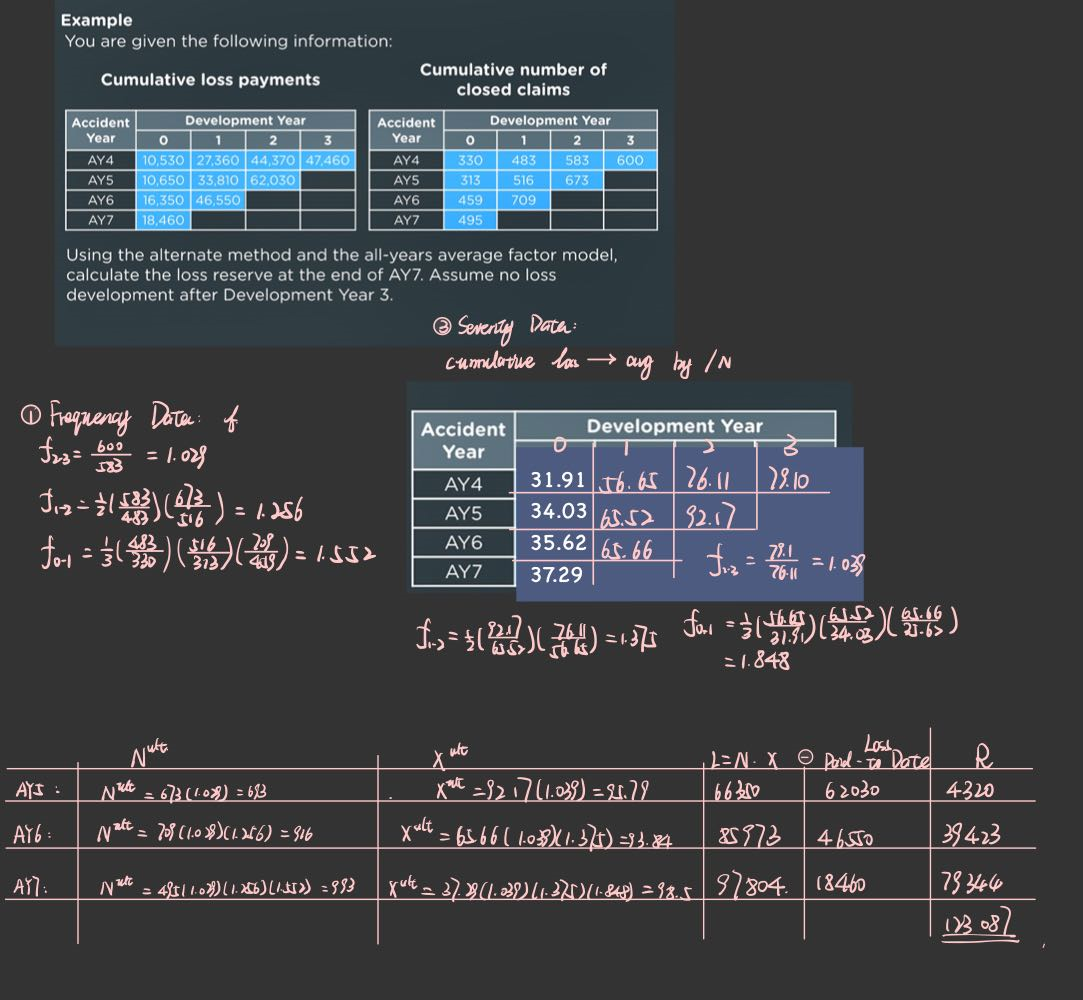 Example
You are given the following information:
Cumulative loss payments
Accident Year | Development Year
0 1 2 3
AY4 10,530 27,360 44,370 47,460
AY5 10,650 33,810 62,030
AY6 16,350 46,550
AY7 18,460
Cumulative number of
closed claims
Accident Year | Development Year
0 1 2 3
AY4 330 483 583 600
AY5 313 516 673
AY6 459 709
AY7 495
Using the alternate method and the all-years average factor model,
calculate the loss reserve at the end of AY7. Assume no loss
development after Development Year 3.
② Severity Data:
cumulative loss → avg by /N
① Frequency Data: f
f2-3 = 600/583 = 1.029
f1-2 = 1/2 (583/483)(673/516) = 1.256
f0-1 = 1/3 (483/330)(516/313)(709/459) = 1.552
Accident Year | Development Year
0 1 2 3
AY4 31.91 56.65 76.11 79.10
AY5 34.03 65.52 92.17
AY6 35.62 65.66
AY7 37.29
f2-3 = 79.1/76.11 = 1.039
f1-2 = 1/2 (92.17/65.52)(76.11/56.65) = 1.375
f0-1 = 1/3 (56.65/31.91)(65.52/34.03)(65.66/35.62)
= 1.848
N^ult X^ult L=N·X ⊖ Paid-Loss to Date R
AY5: N^ult = 673(1.029) = 693 X^ult = 92.17(1.039) = 95.79 66380 62030 4320
AY6: N^ult = 709(1.029)(1.256) = 916 X^ult = 65.66(1.039)(1.375) = 93.84 85973 46550 39423
AY7: N^ult = 495(1.029)(1.256)(1.552) = 993 X^ult = 37.29(1.039)(1.375)(1.848) = 98.5 97804. 18460 79344
123 087